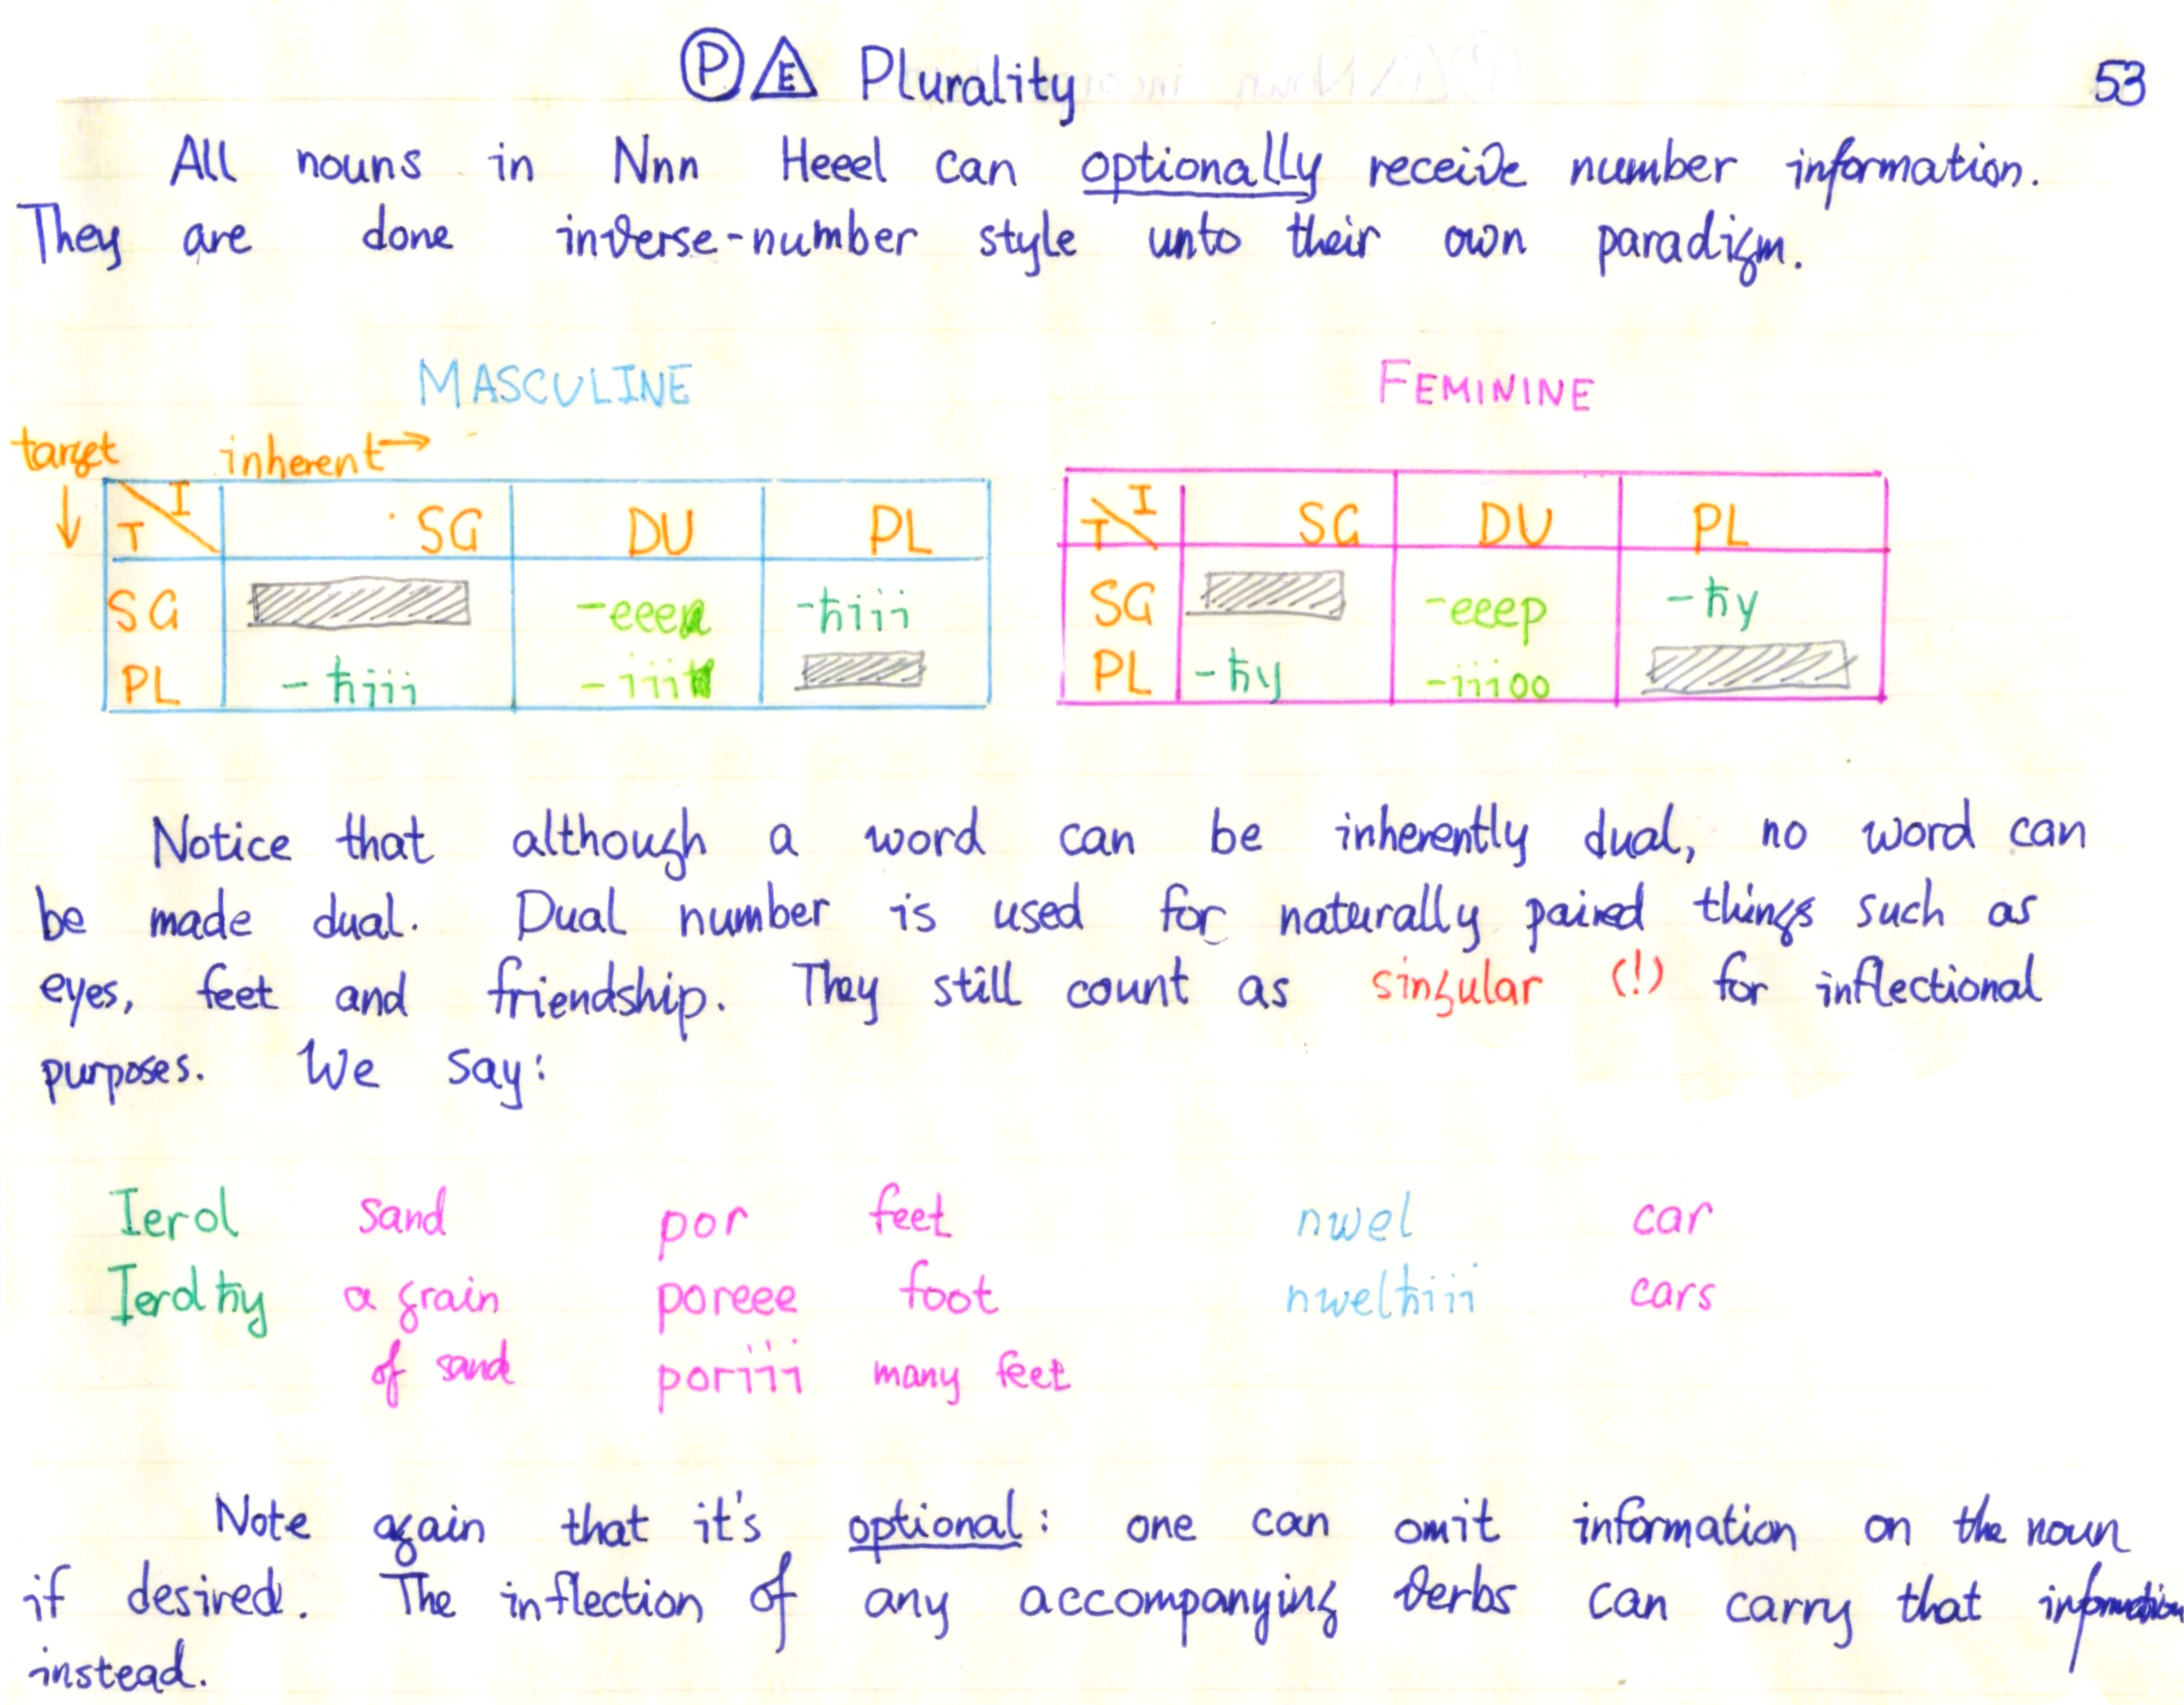 P E Plurality 53
All nouns in Nnn Heeel can optionally receive number information.
They are done inverse-number style unto their own paradigm.
MASCULINE FEMININE
target inherent →
↓
T I SG DU PL
SG -eeen -ħiii
PL -ħiii -iii
T I SG DU PL
SG -eeep -ħy
PL -ħy -iiioo
Notice that although a word can be inherently dual, no word can
be made dual. Dual number is used for naturally paired things such as
eyes, feet and friendship. They still count as singular (!) for inflectional
purposes. We say:
Ierol sand por feet nwel car
Ierolħy a grain poreee foot nwelħiii cars
of sand poriii many feet
Note again that it's optional: one can omit information on the noun
if desired. The inflection of any accompanying verbs can carry that information
instead.